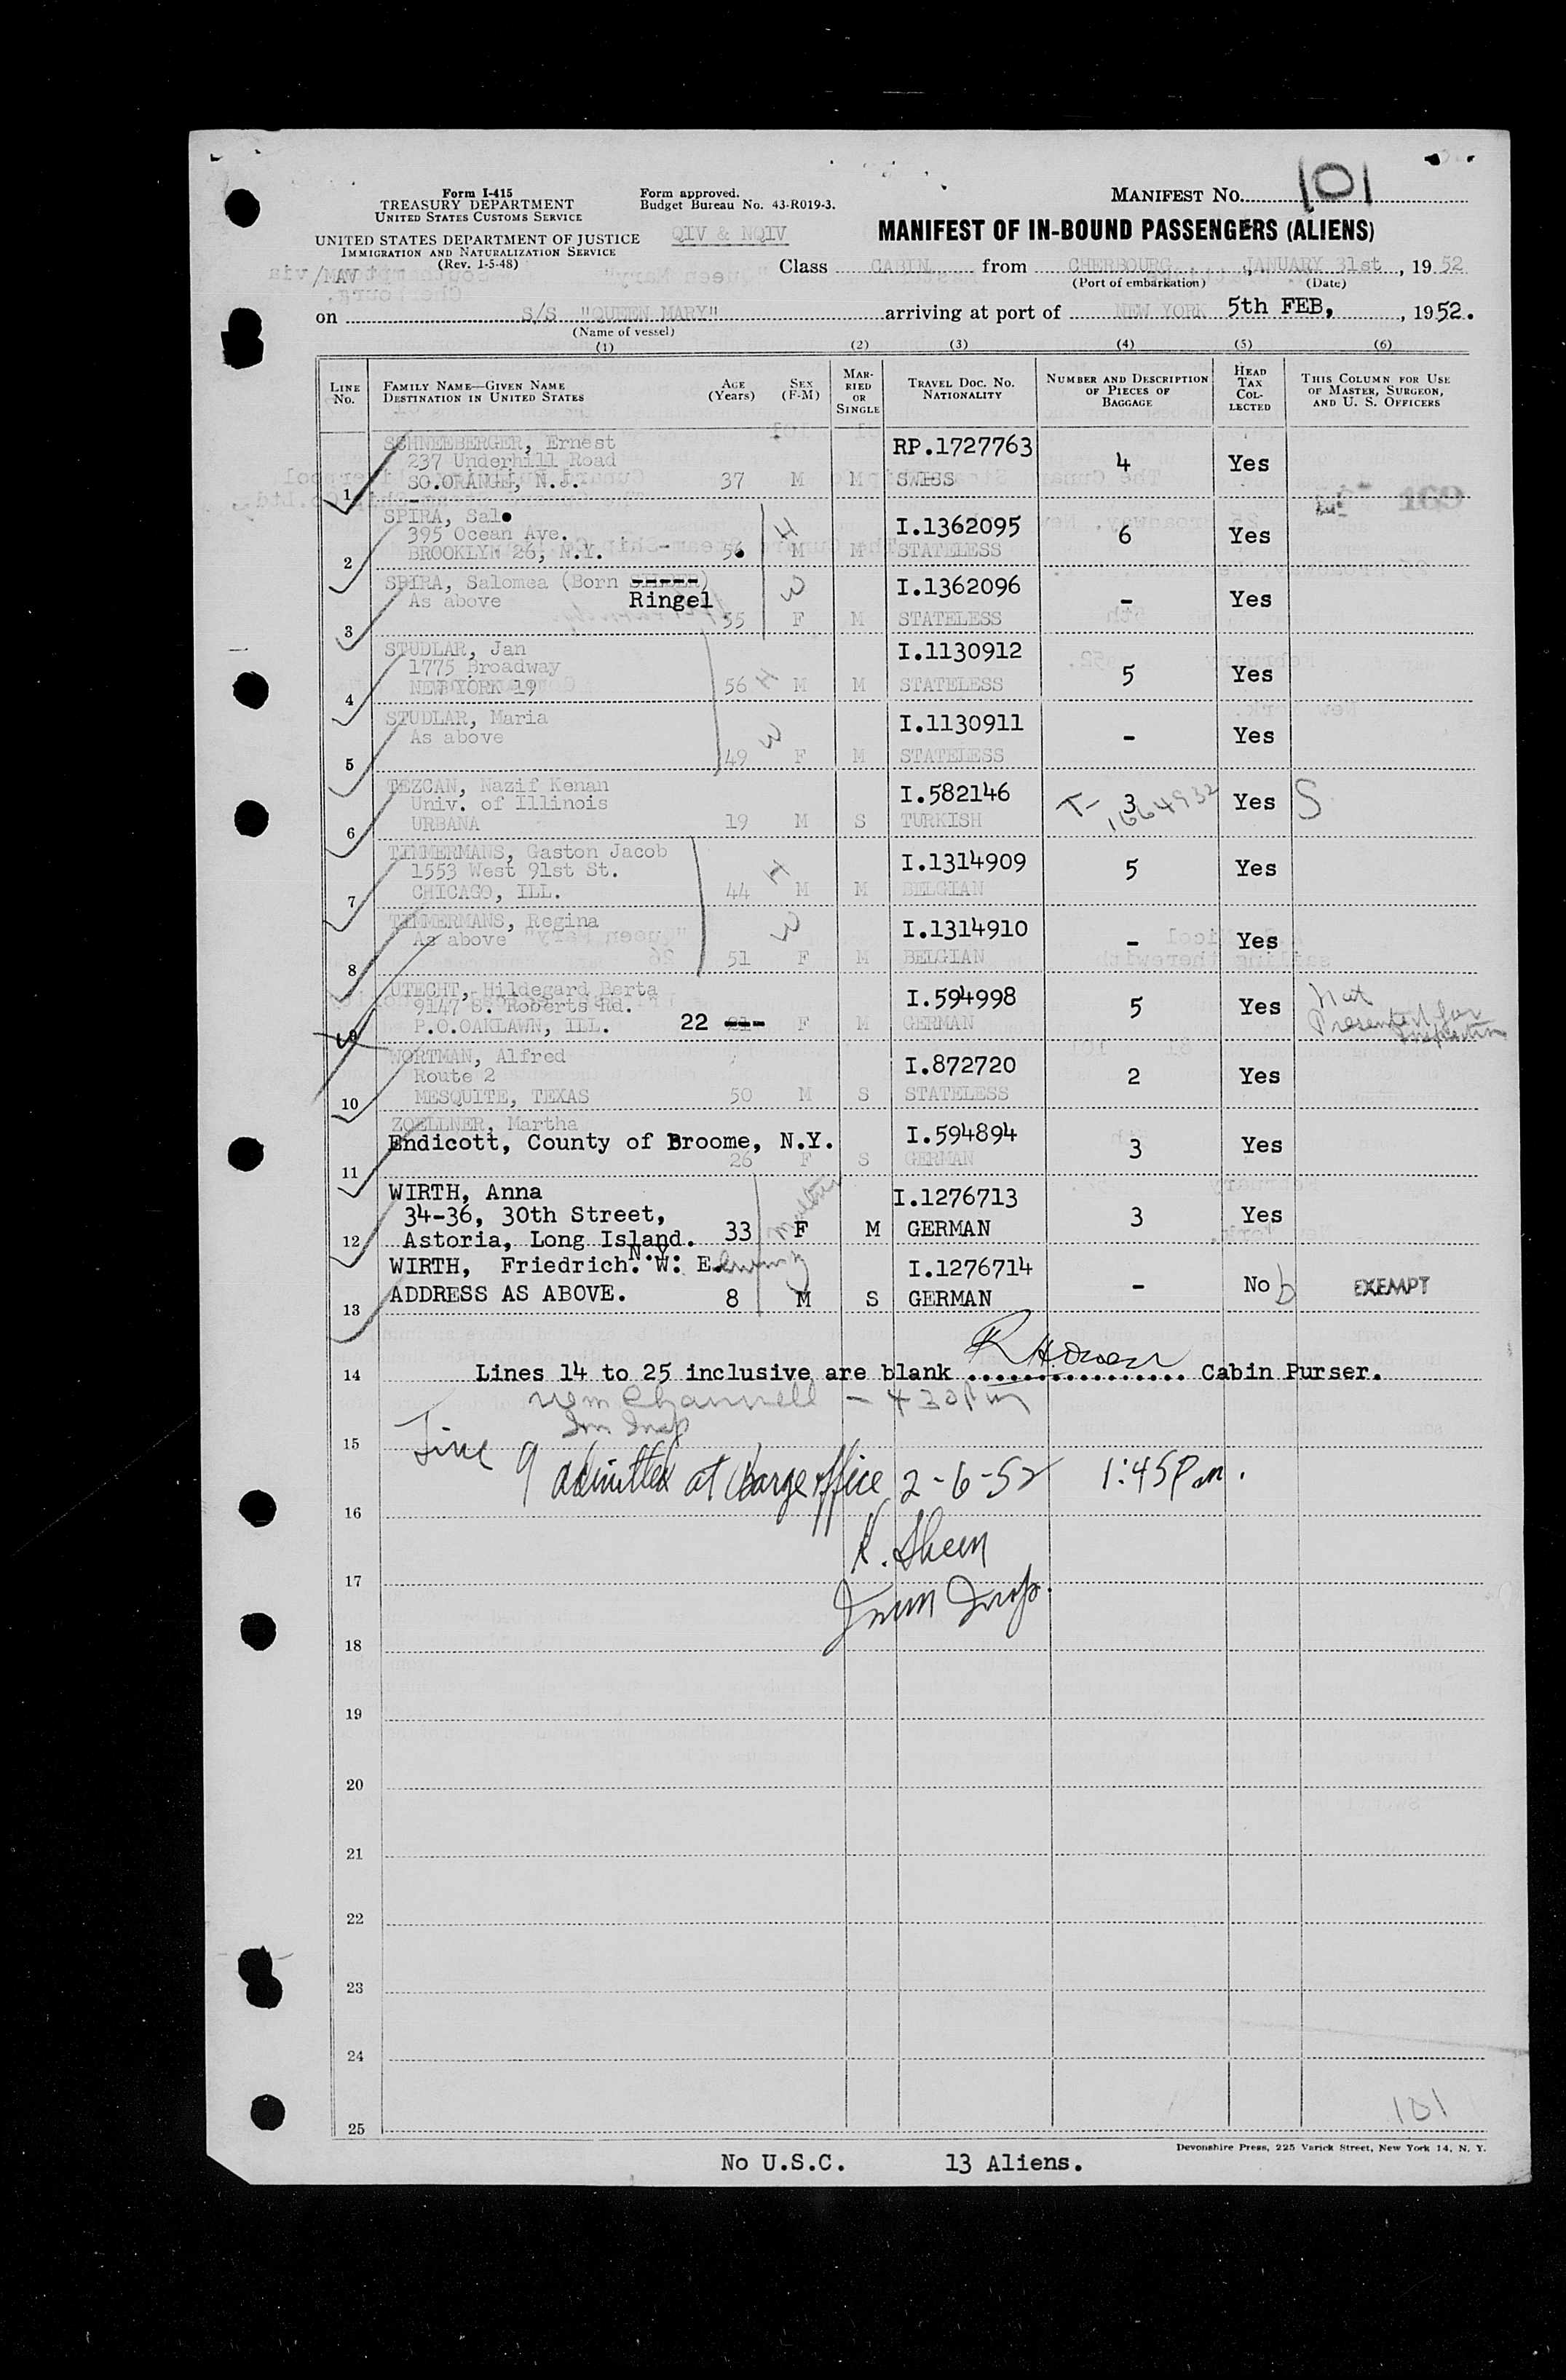 Form I-415
TREASURY DEPARTMENT
UNITED STATES CUSTOMS SERVICE
UNITED STATES DEPARTMENT OF JUSTICE
IMMIGRATION AND NATURALIZATION SERVICE
(Rev. 1-5-48)
/MAV
Form approved.
Budget Bureau No. 43-R019-3.
QIV & NQIV
MANIFEST NO. 101
MANIFEST OF IN-BOUND PASSENGERS (ALIENS)
Class CABIN from CHERBOURG, JANUARY 31st, 1952
(Port of embarkation) (Date)
on S/S "QUEEN MARY" arriving at port of NEW YORK 5th FEB, , 1952.
(Name of vessel)
(1) (2) (3) (4) (5) (6)
LINE NO. FAMILY NAME—GIVEN NAME DESTINATION IN UNITED STATES AGE (Years) SEX (F-M) MARRIED OR SINGLE TRAVEL DOC. NO. NATIONALITY NUMBER AND DESCRIPTION OF PIECES OF BAGGAGE HEAD TAX COLLECTED THIS COLUMN FOR USE OF MASTER, SURGEON, AND U. S. OFFICERS
SCHNEEBERGER, Ernest RP.1727763
237 Underhill Road 4 Yes
1 SO.ORANGE, N.J. 37 M M SWISS
169
SPIRA, Salo H I.1362095
395 Ocean Ave. 6 Yes
2 BROOKLYN 26, N.Y. - 56 M M STATELESS
SPIRA, Salomea (Born -----) W I.1362096
As above Ringel - Yes
3 55 F M STATELESS
STUDLAR, Jan I.1130912
1775 Broadway 5 Yes
4 NEW YORK 19 56 H M M STATELESS
STUDLAR, Maria I.1130911
As above W - Yes
5 49 F M STATELESS
TEZCAN, Nazif Kenan I.582146
Univ. of Illinois T- 1664932 3 Yes S
6 URBANA 19 M S TURKISH
TIMMERMANS, Gaston Jacob I.1314909
1553 West 91st St. H 5 Yes
7 CHICAGO, ILL. 44 M M BELGIAN
TIMMERMANS, Regina W I.1314910
As above - Yes
8 51 F M BELGIAN
UTECHT, Hildegard Berta I.594998 Not
9147 S. Roberts Rd. 5 Yes Presented for
9 P.O.OAKLAWN, ILL. 22 --- F M GERMAN Inspection
WORTMAN, Alfred I.872720
Route 2 2 Yes
10 MESQUITE, TEXAS 50 M S STATELESS
ZOELLNER, Martha I.594894
Endicott, County of Broome, N.Y. 3 Yes
11 26 F S GERMAN
WIRTH, Anna I.1276713
34-36, 30th Street, 33 mother F M GERMAN 3 Yes
12 Astoria, Long Island.
N.Y.
WIRTH, Friedrich. W: E. I.1276714
13 ADDRESS AS ABOVE. 8 M S GERMAN - No b EXEMPT
14 Lines 14 to 25 inclusive are blank ................ Cabin Purser.
Wm Channell - 430 Pm
Im Insp
15
Line 9 admitted at Barge office 2-6-52 1:45 P.m.
16
K. Sheen
17
Imm Insp.
18
19
20
21
22
23
24
101
25
Devonshire Press, 225 Varick Street, New York 14, N. Y.
No U.S.C. 13 Aliens.